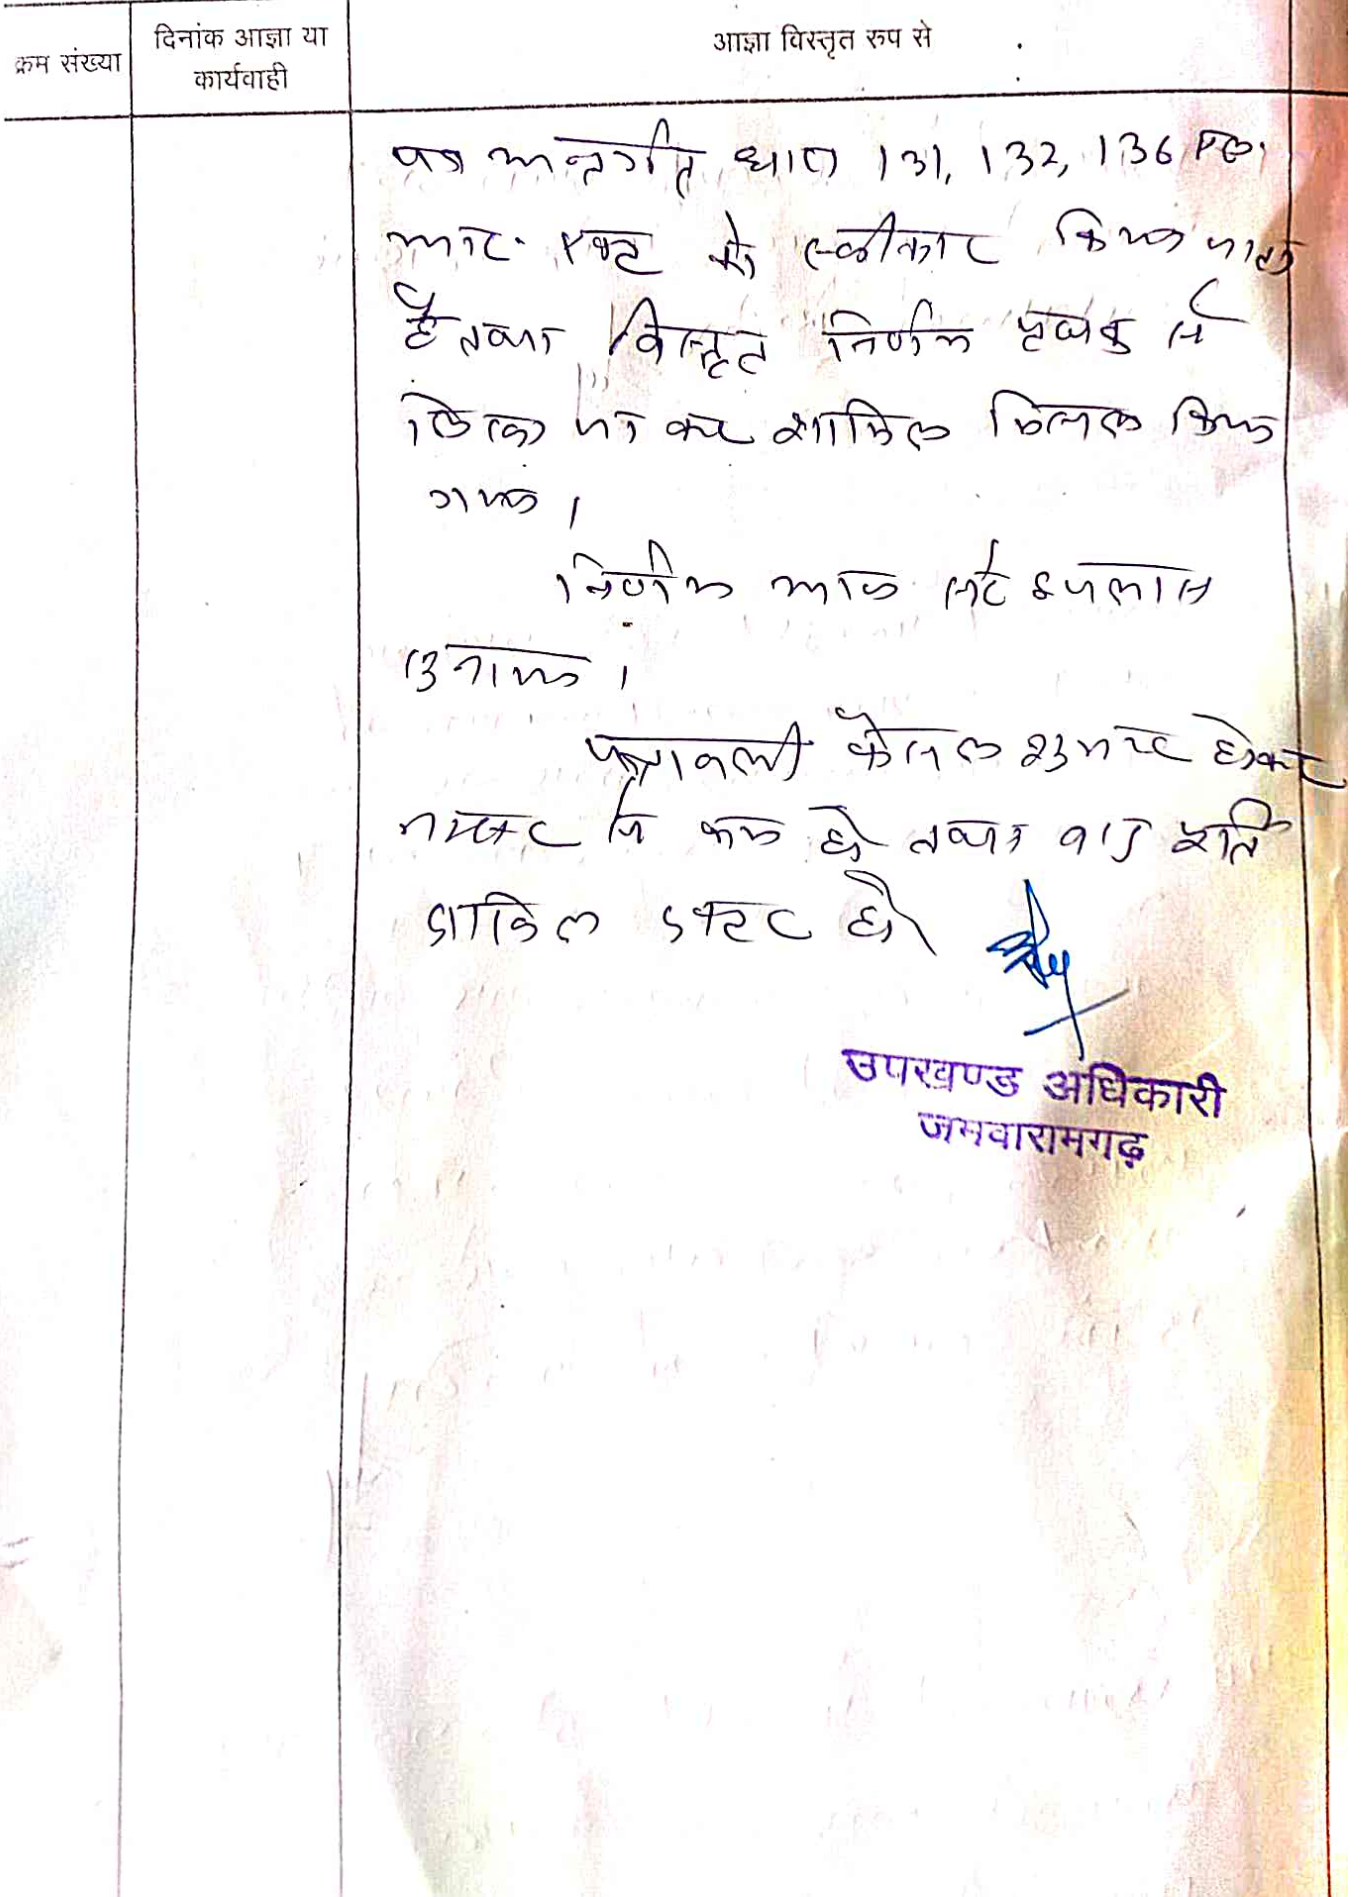 क्रम संख्या
दिनांक आज्ञा या
कार्यवाही
आज्ञा विस्तृत रुप से
पत्र अन्तर्गत धारा 131, 132, 136 एल.
आर. एक्ट को स्वीकार किया जाता
है तथा विस्तृत निर्णय पृथक से
लिखा जा कर शामिल मिसल किया
गया ।
निर्णय आज सरे इजलास
सुनाया ।
पत्रावली फैसल शुमार होकर
नम्बर से कम हो तथा बाद पूर्ति
दाखिल दफ्तर हो
उपखण्ड अधिकारी
जमवारामगढ़